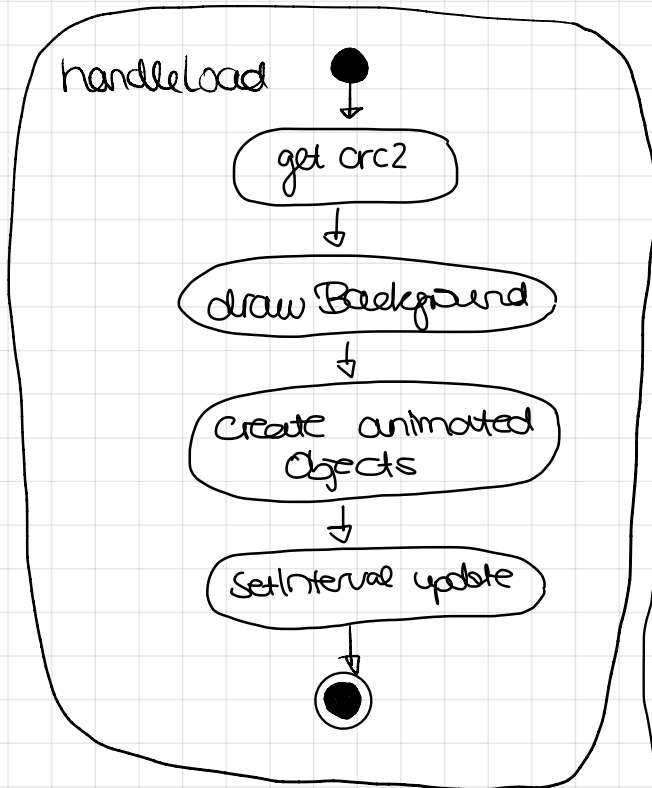 handleLoad
get crc2
draw Background
create animated
Objects
setInterval update